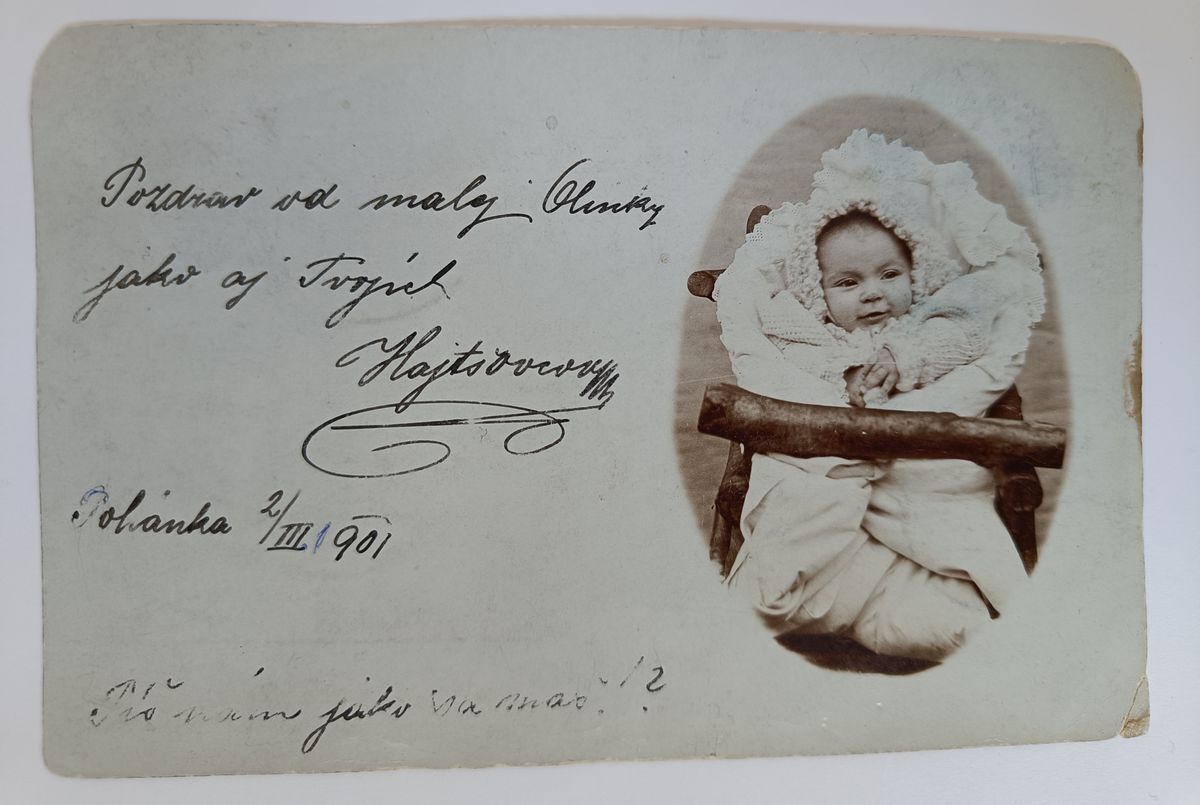 Pozdrav od malej Olinky
jako aj Tvojich
Hajtšovcov
Pohánka 2/III. 1901
Píš nám jako sa maš!?